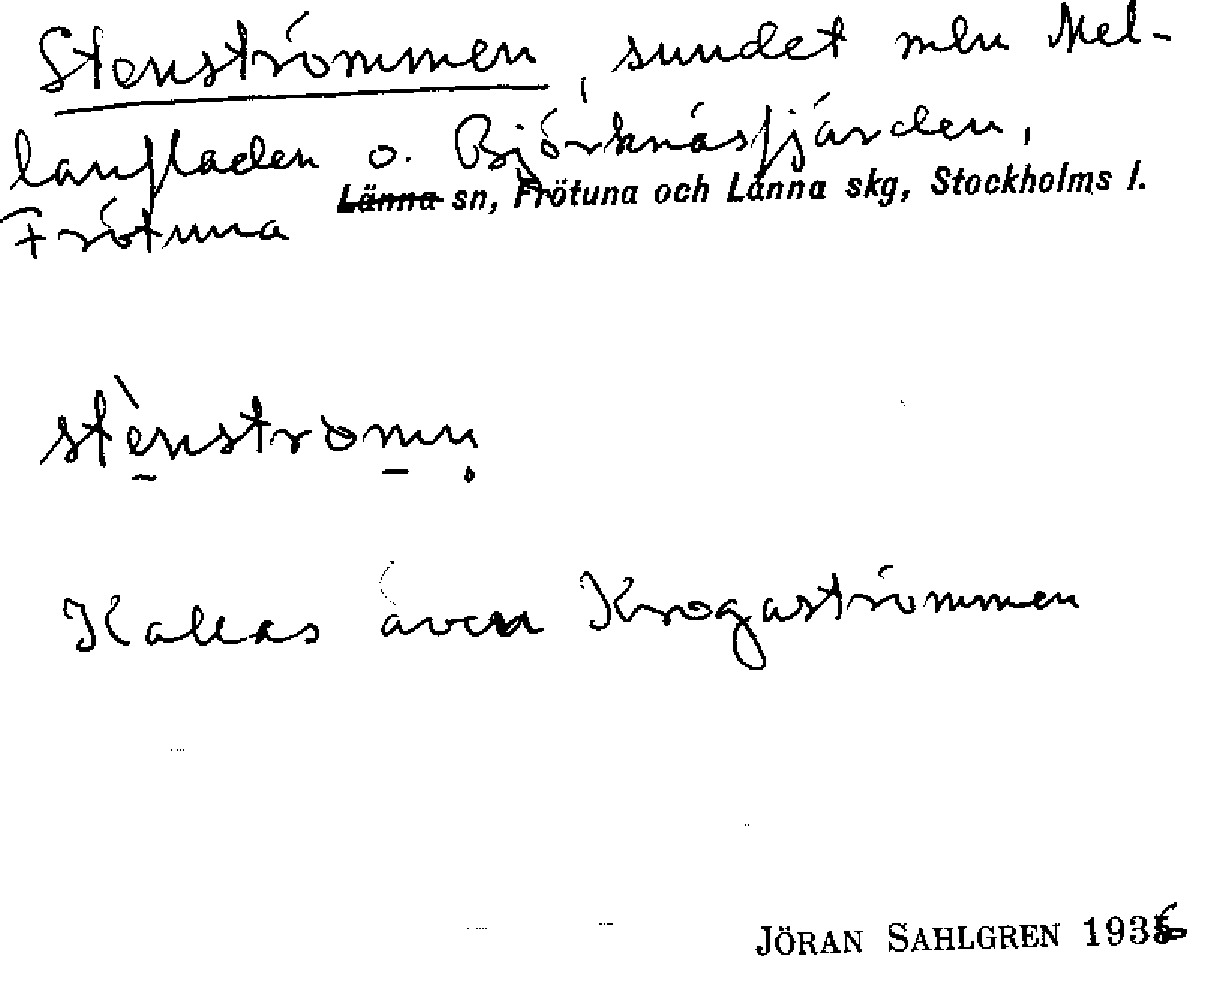 Stenströmmen, sundet mln Mel-
lanfladen o. Björknäsfjärden,
Länna sn, Frötuna och Länna skg, Stockholms l.
Frötuna
stènstromn̥
Kallas även Krogaströmmen
JÖRAN SAHLGREN 1936